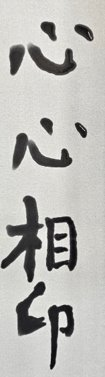 心心相印